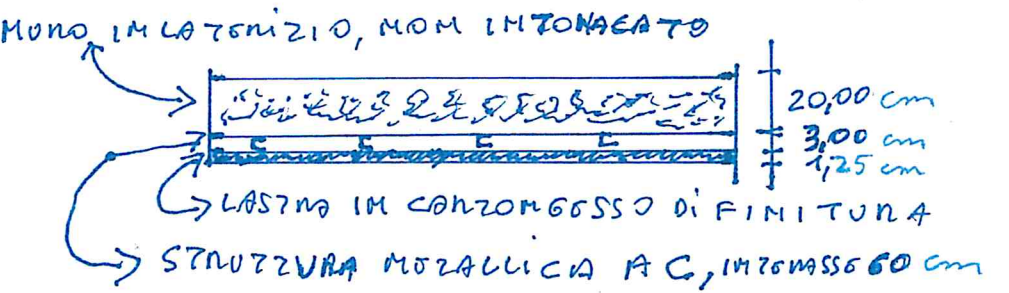 MURO IN LATERIZIO, NON INTONACATO
20,00 cm
3,00 cm
1,25 cm
LASTRA IN CARTONGESSO Di FINITURA
STRUTTURA METALLICA A C, INTERASSE 60 cm